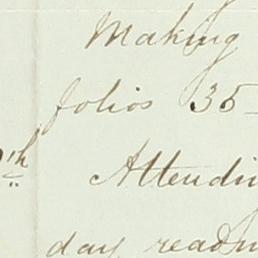 Making
folios 35
Attendi
day readin